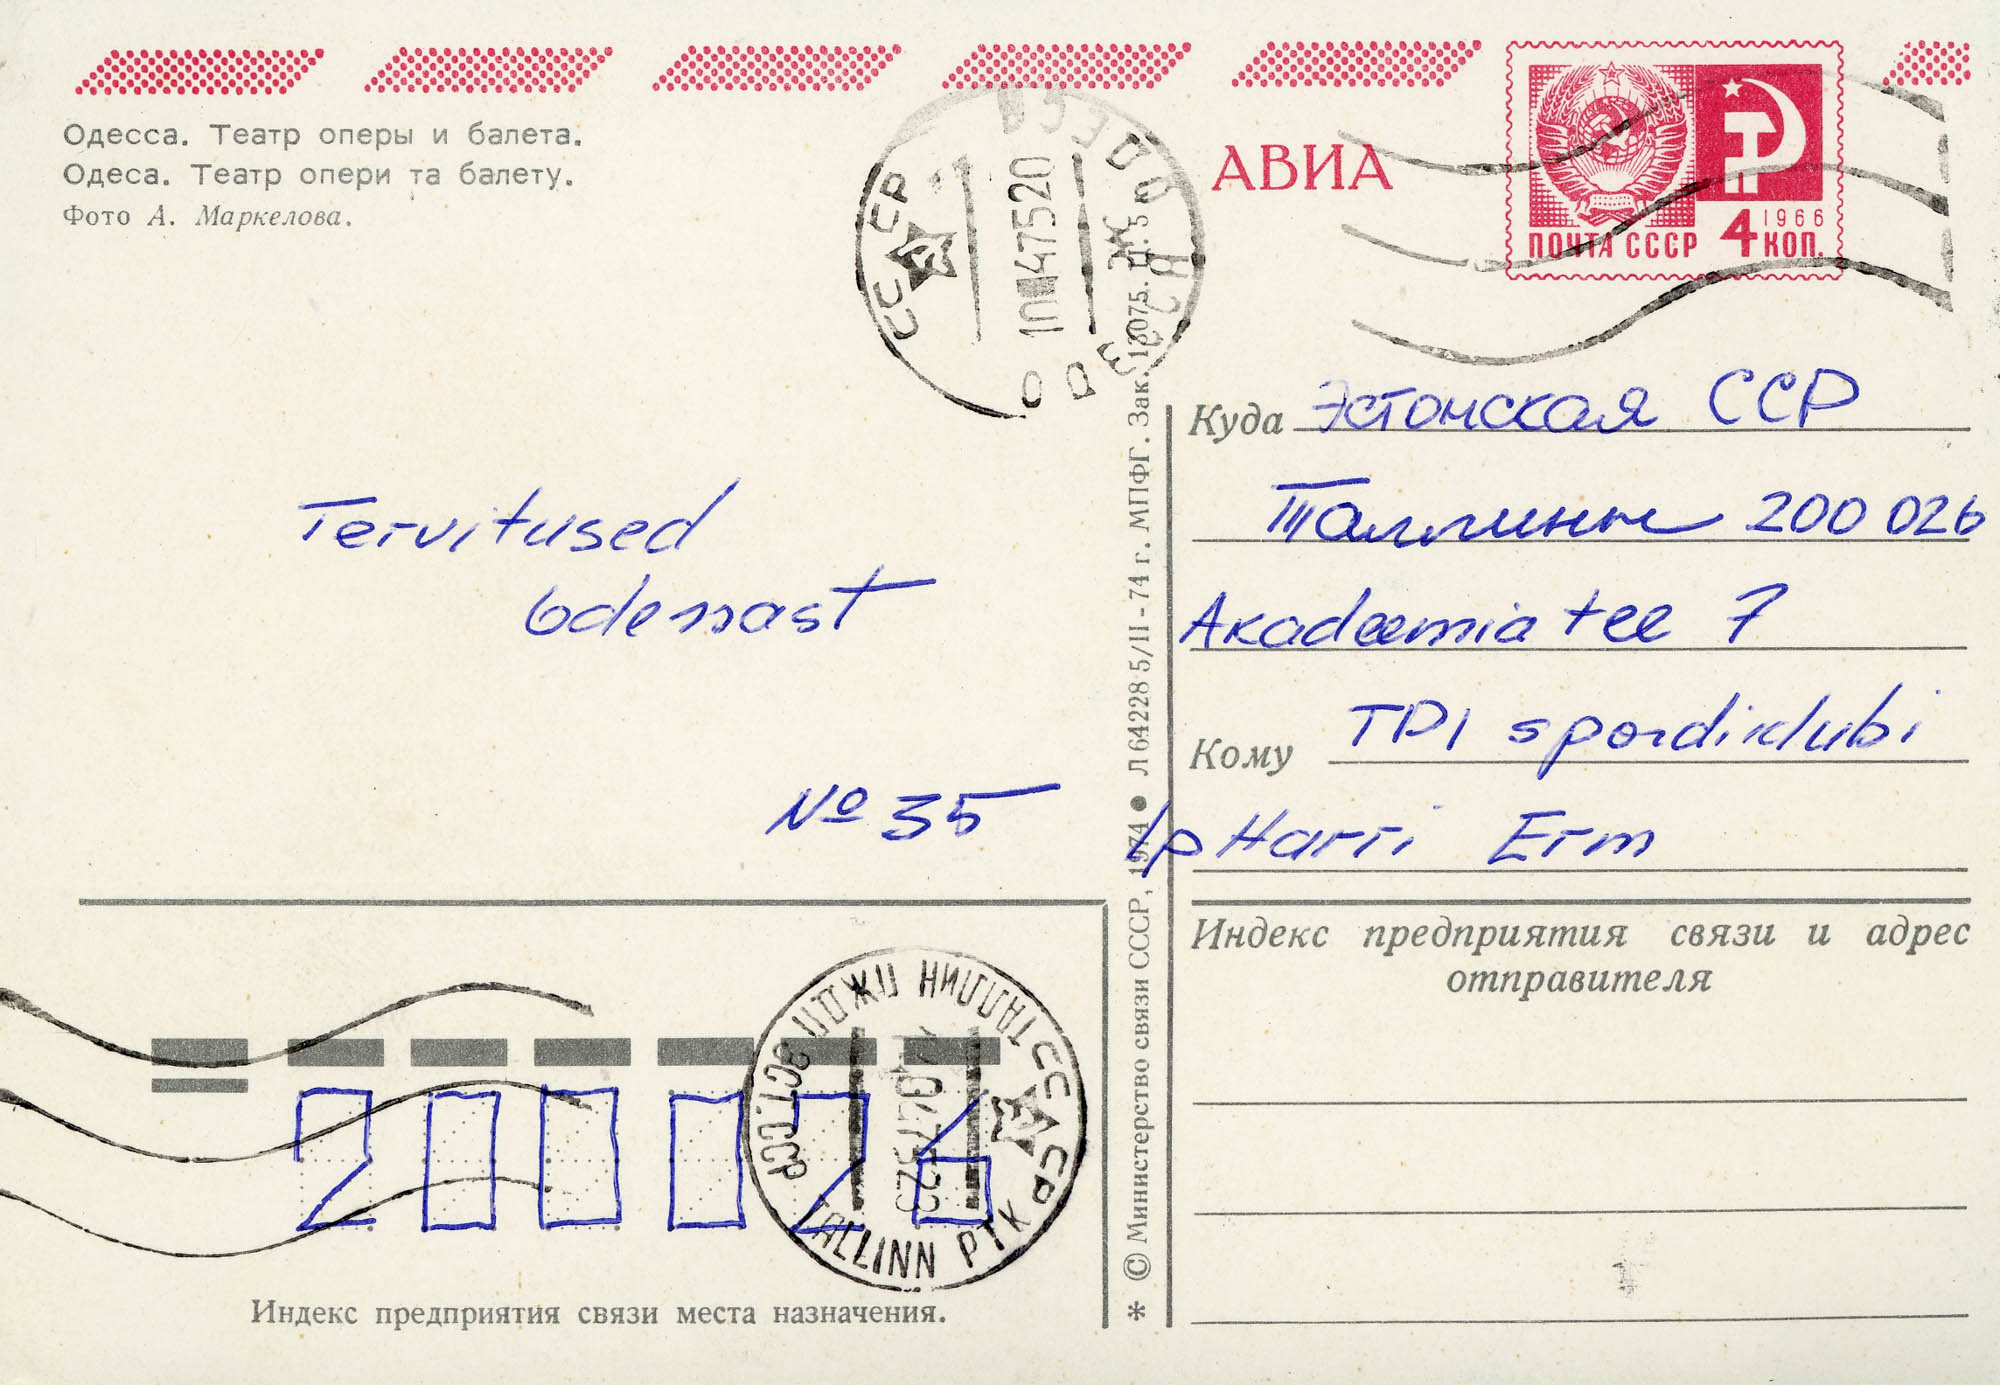 Одесса. Театр оперы и балета.
Одеса. Театр опери та балету.
Фото А. Маркелова.
АВИА
1966
ПОЧТА СССР 4 КОП.
СССР
ОДЕССА
Tervitused
Odessast
№ 35
Куда Эстонская ССР
Таллинн 200 026
Akadeemia tee 7
Кому TPI spordiklubi
l/p Harri Erm
Индекс предприятия связи и адрес
отправителя
200026
ТАЛЛИН ПЖДП
ЭСТ.ССР
СССР
TALLINN PTK
Индекс предприятия связи места назначения.
* © Министерство связи СССР, 1974 ● Л 64228 5/II - 74 г. МПФГ. Зак.